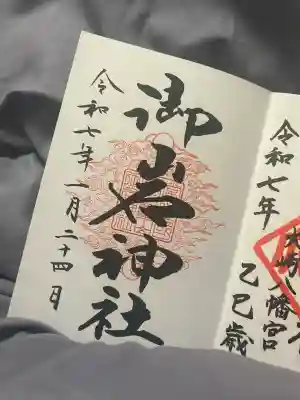 御岩神社
令和七年一月二十四日
令和七年
大崎八幡宮
乙巳歳